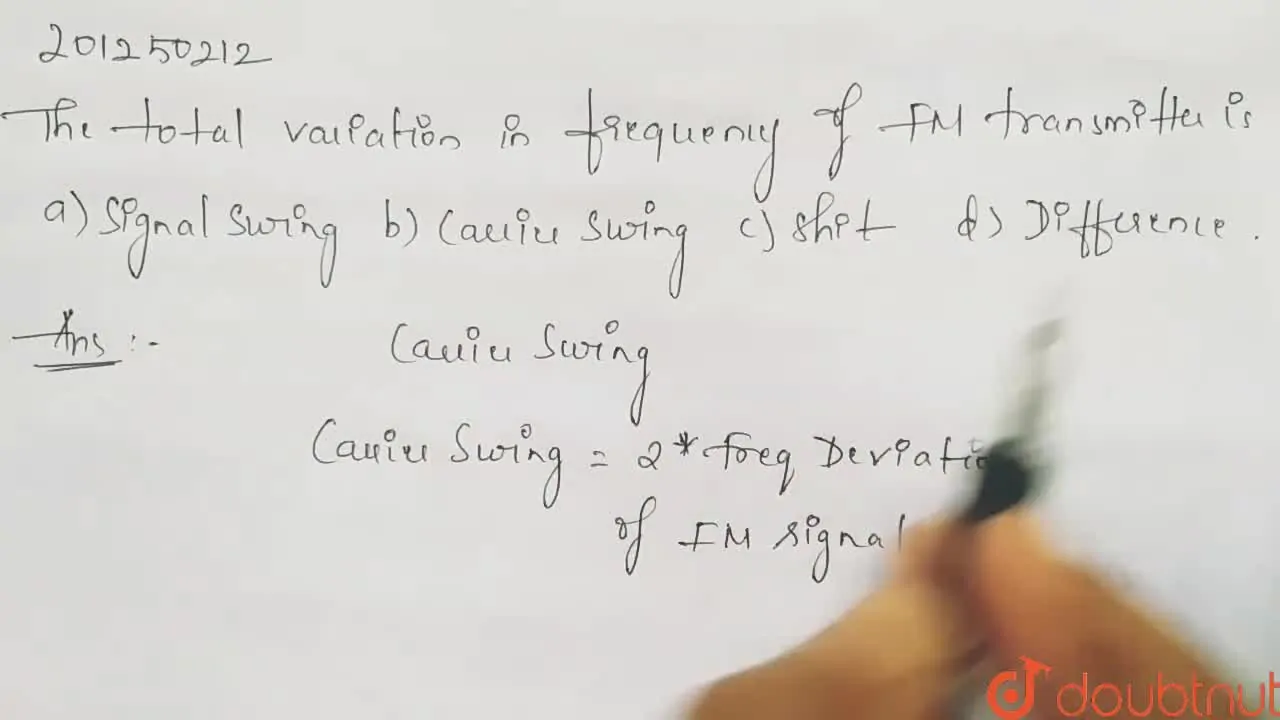 201250212
The total variation in frequency of FM transmitter is
a) Signal Swing b) Carrier Swing c) Shit d) Difference.
Ans :-
Carrier Swing
Carrier Swing = 2 * freq Deviatio
of FM signal
doubtnut